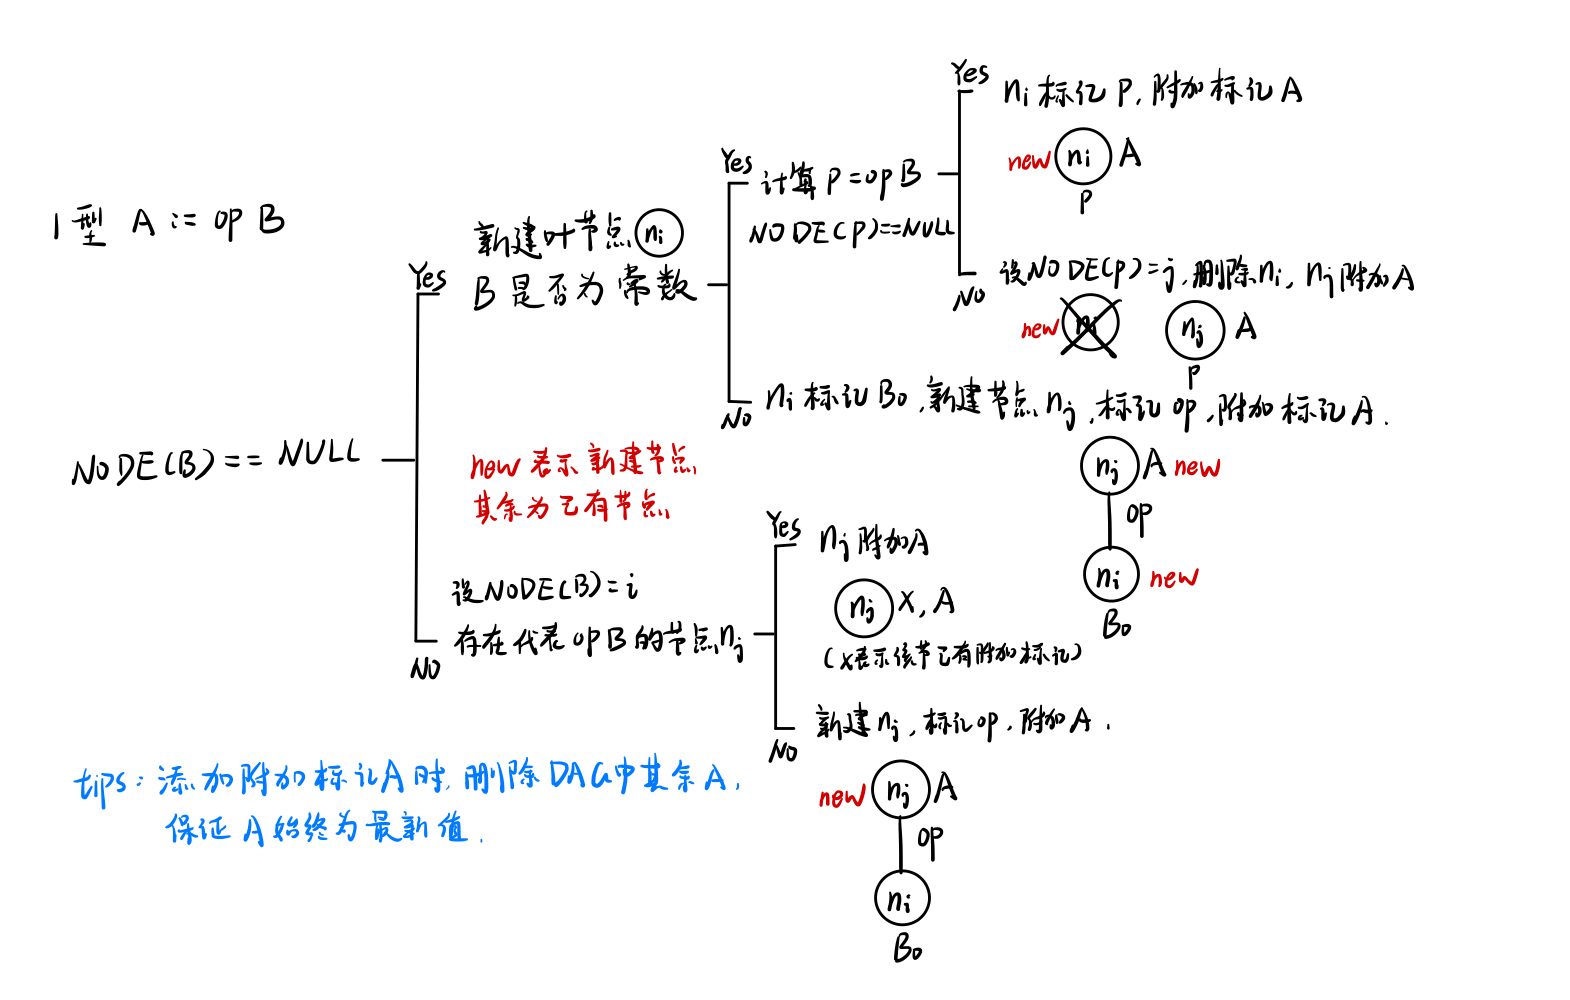 1型 A := op B
NODE(B) == NULL
Yes
新建叶节点 ni
B是否为常数
Yes
计算 P = op B
NODE(P)==NULL
Yes
ni标记P,附加标记A
new ni A
P
No
设NODE(P)=j,删除ni,nj附加A
new ni nj A
P
No
ni标记B0,新建节点nj,标记op,附加标记A.
nj A new
op
ni new
B0
new表示新建节点
其余为已有节点
No
设NODE(B)=i
存在代表opB的节点nj
Yes
nj附加A
nj X, A
(X表示该节已有附加标记)
No
新建nj,标记op,附加A.
new nj A
op
ni
B0
tips: 添加附加标记A时,删除DAG中其余A,
保证A始终为最新值.